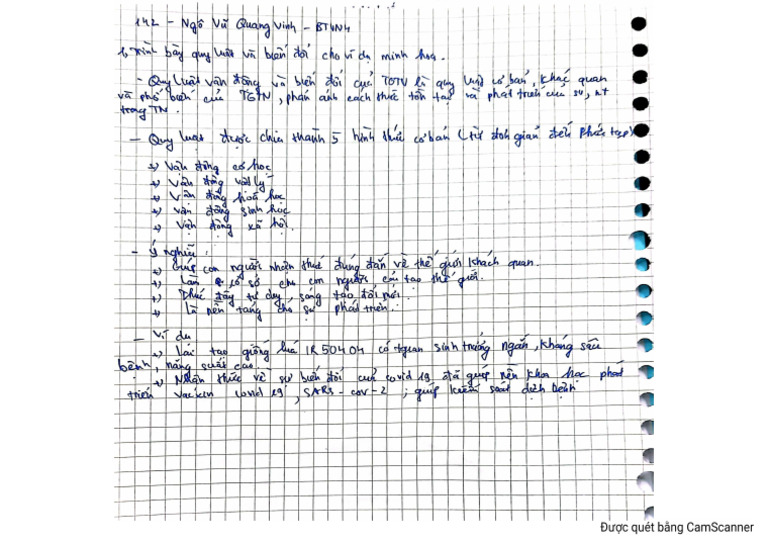 142 - Ngô Vũ Quang Vinh - BTVN4
1, Trình bày quy luật và biến đổi cho ví dụ minh hoạ.
- Quy luật vận động và biến đổi của TGTN là quy luật cơ bản, khác quan
và phổ biến của TGTN, phản ánh cách thức tồn tại và phát triển của sv, ht
trong TN.
- Quy luật được chia thành 5 hình thức cơ bản (từ đơn giản đến phức tạp)
+) Vận động cơ học
+) Vận động vật lý
+) Vận động hoá học
+) Vận động sinh học
+) Vận động xã hội.
- Ý nghĩa:
+) Giúp con người nhận thức đúng đắn về thế giới khách quan.
+) Làm cơ sở cho con người cải tạo thế giới.
+) Thúc đẩy tư duy sáng tạo đổi mới.
+) Là nền tảng cho sự phát triển.
- Ví dụ
+) Lai tạo giống lúa IR50404 có tgian sinh trưởng ngắn, kháng sâu
bệnh, năng suất cao.
+) Nhận thức về sự biến đổi của covid 19 đã giúp nền khoa học phát
triển vacxin covid 19, SARS-cov-2, giúp kiểm soát dịch bệnh
Được quét bằng CamScanner